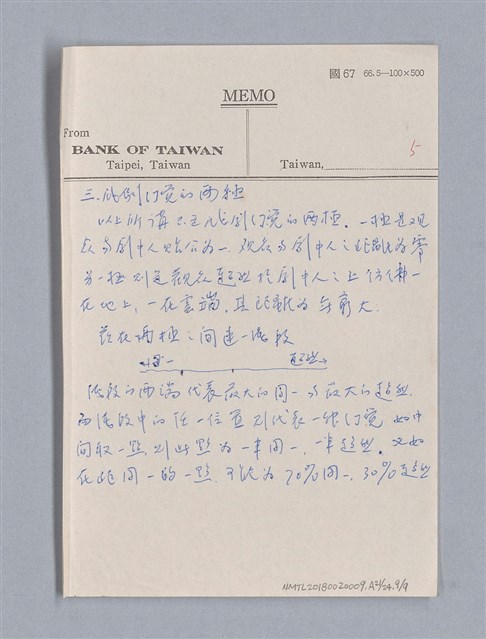 國67 66.5—100×500
MEMO
From
BANK OF TAIWAN
Taipei, Taiwan
Taiwan,
5
三.戲劇幻覺的兩極
以上所講只是戲劇幻覺的兩極.一極是观
众与劇中人合為一.观众与劇中人之距離為零
另一極則是觀众超然於劇中人之上仿佛一
在地上,一在雲端.其距離為無窮大.
茲在兩極之間連一線段
同一 超然
線段的兩端代表最大的同一与最大的超然.
而線段中的任一位置則代表一種幻覺 如中
間取一點 則此點為一半同一,一半超然.又如
在距同一的一點 可能為70%同一,30%超然
NMTL20180020009.A21/24.9/9